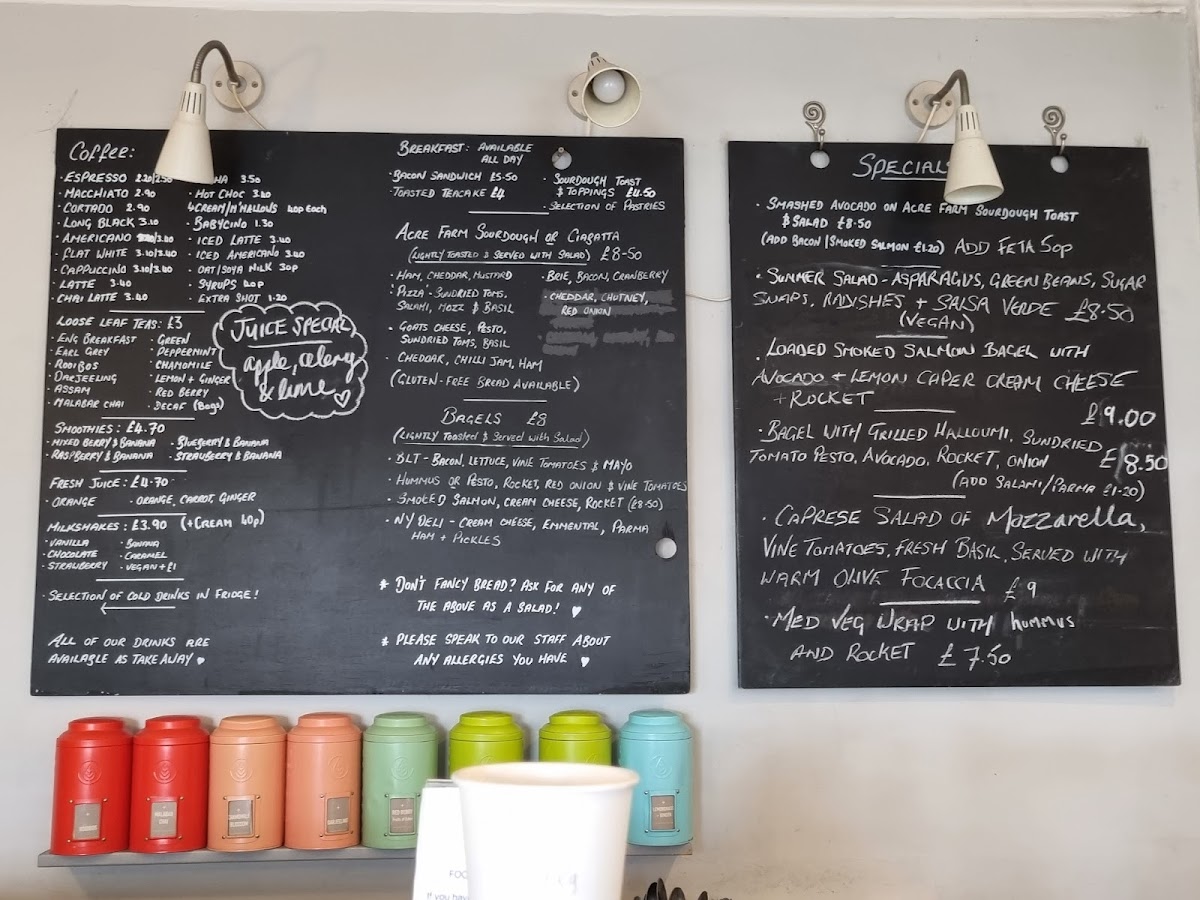 Coffee:
· ESPRESSO 2.20/2.50
· MACCHIATO 2.90
· CORTADO 2.90
· LONG BLACK 3.10
· AMERICANO /3.40
· FLAT WHITE 3.10/3.40
· CAPPUCCINO 3.10/3.40
· LATTE 3.40
· CHAI LATTE 3.40
3.50
· HOT CHOC 3.40
+CREAM/M'MALLOWS 40p Each
· BABYCINO 1.30
· ICED LATTE 3.40
· ICED AMERICANO 3.40
· OAT/SOYA MILK 30p
· SYRUPS 40p
· EXTRA SHOT 1.20
LOOSE LEAF TEAS: £3
· ENG BREAKFAST
· EARL GREY
· ROOIBOS
· DARJEELING
· ASSAM
· MALABAR CHAI
· GREEN
· PEPPERMINT
· CHAMOMILE
· LEMON + GINGER
· RED BERRY
· DECAF (Bags)
JUICE SPECIAL
apple, celery
& lime ♡
SMOOTHIES: £4.70
· MIXED BERRY & BANANA · BLUEBERRY & BANANA
· RASPBERRY & BANANA · STRAWBERRY & BANANA
FRESH JUICE: £4.70
· ORANGE · ORANGE, CARROT, GINGER
MILKSHAKES: £3.90 (+CREAM 40p)
· VANILLA · BANANA
· CHOCOLATE · CARAMEL
· STRAWBERRY · VEGAN + £1
· SELECTION OF COLD DRINKS IN FRIDGE!
ALL OF OUR DRINKS ARE
AVAILABLE AS TAKE AWAY ♥
BREAKFAST: AVAILABLE
ALL DAY
· BACON SANDWICH £5.50
· TOASTED TEACAKE £4
· SOURDOUGH TOAST
& TOPPINGS £4.50
· SELECTION OF PASTRIES
ACRE FARM SOURDOUGH OR CIABATTA
(LIGHTLY TOASTED & SERVED WITH SALAD) £8.50
· HAM, CHEDDAR, MUSTARD
· 'PIZZA' SUNDRIED TOMS,
SALAMI, MOZZ & BASIL
· GOATS CHEESE, PESTO,
SUNDRIED TOMS, BASIL
· CHEDDAR, CHILLI JAM, HAM
(GLUTEN-FREE BREAD AVAILABLE)
· BRIE, BACON, CRANBERRY
· CHEDDAR, CHUTNEY,
RED ONION
BAGELS £8
(LIGHTLY TOASTED & SERVED WITH SALAD)
· BLT - BACON, LETTUCE, VINE TOMATOES & MAYO
· HUMMUS OR PESTO, ROCKET, RED ONION & VINE TOMATOES
· SMOKED SALMON, CREAM CHEESE, ROCKET (£8.50)
· NY DELI - CREAM CHEESE, EMMENTAL, PARMA
HAM + PICKLES
* DON'T FANCY BREAD? ASK FOR ANY OF
THE ABOVE AS A SALAD! ♥
* PLEASE SPEAK TO OUR STAFF ABOUT
ANY ALLERGIES YOU HAVE ♥
SPECIALS
· SMASHED AVOCADO ON ACRE FARM SOURDOUGH TOAST
& SALAD £8.50
(ADD BACON/SMOKED SALMON £1.20) ADD FETA 50p
· SUMMER SALAD - ASPARAGUS, GREEN BEANS, SUGAR
SNAPS, RADYSHES + SALSA VERDE £8.50
(VEGAN)
· LOADED SMOKED SALMON BAGEL WITH
AVOCADO + LEMON CAPER CREAM CHEESE
+ ROCKET
£9.00
· BAGEL WITH GRILLED HALLOUMI, SUNDRIED
TOMATO PESTO, AVOCADO, ROCKET, ONION £8.50
(ADD SALAMI/PARMA £1.20)
· CAPRESE SALAD OF Mozzarella,
VINE TOMATOES, FRESH BASIL, SERVED WITH
WARM OLIVE FOCACCIA £9
· MED VEG WRAP WITH hummus
AND ROCKET £7.50
MALABAR
CHAI
RED BERRY
FOO
If you hav